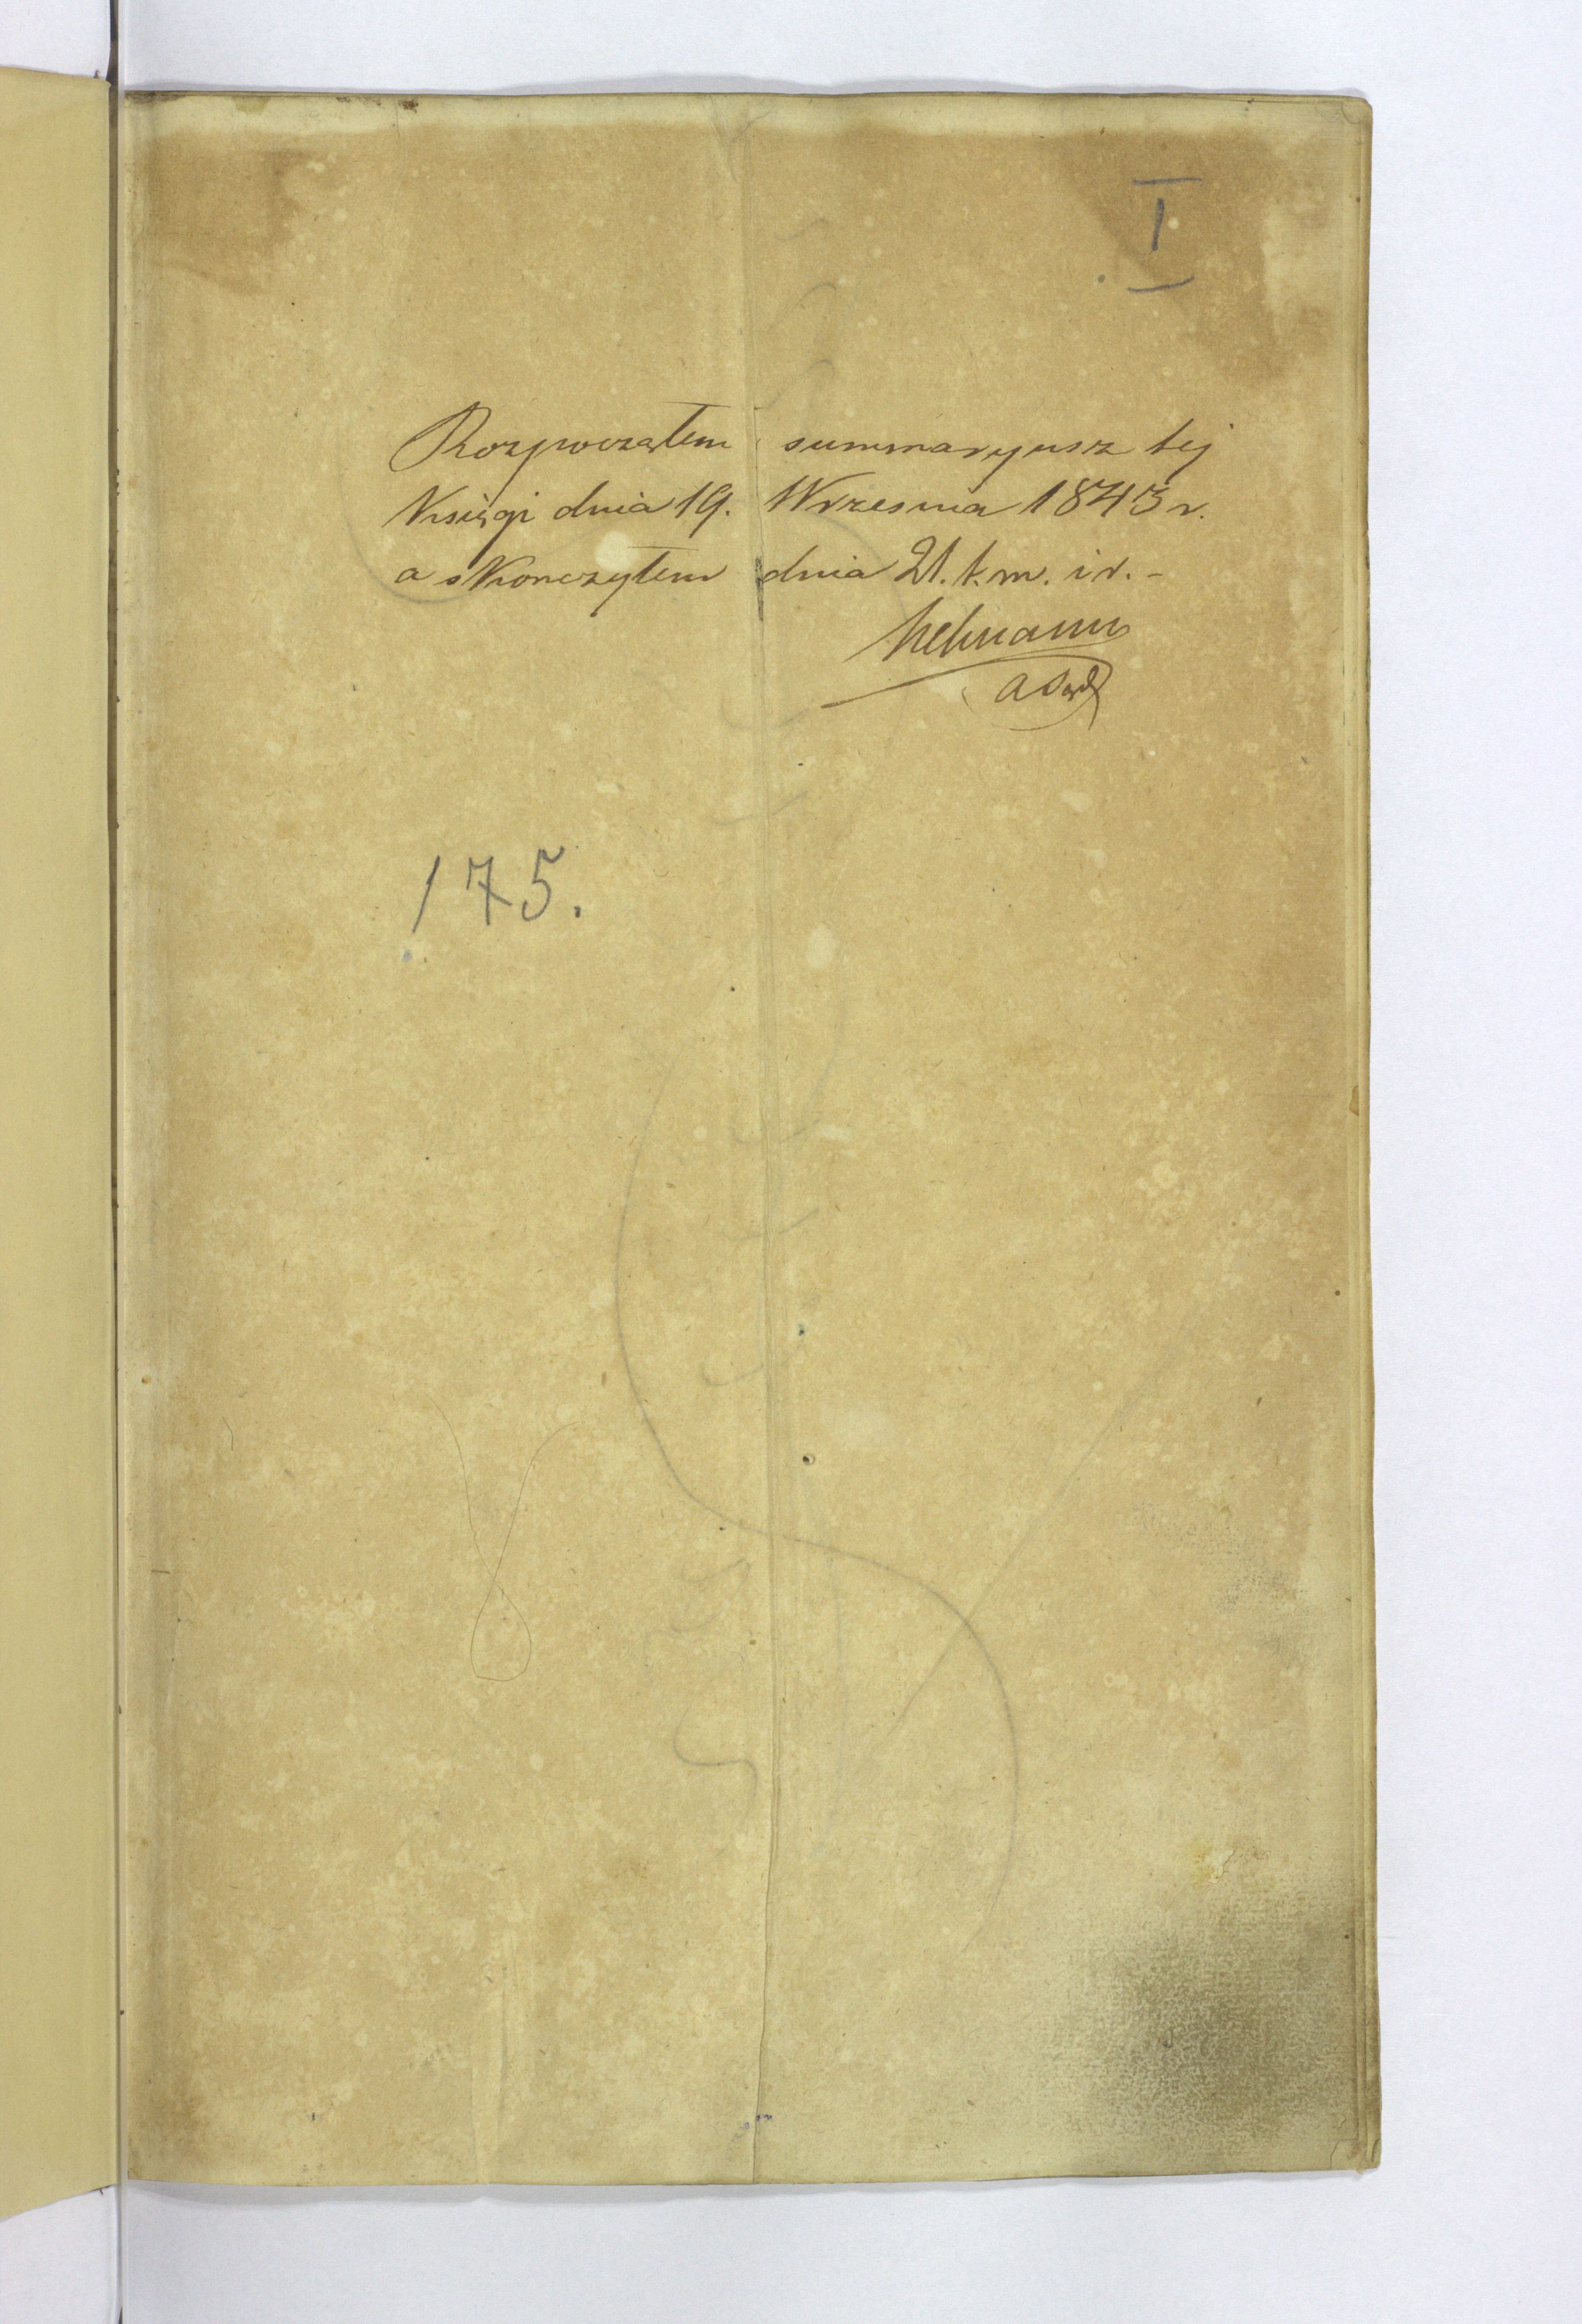 I
Rozpocząłem summaryusz tej
Księgi dnia 19. Wrzesnia 1843 r.
a skonczyłem dnia 21. t. m. i r. -
175.